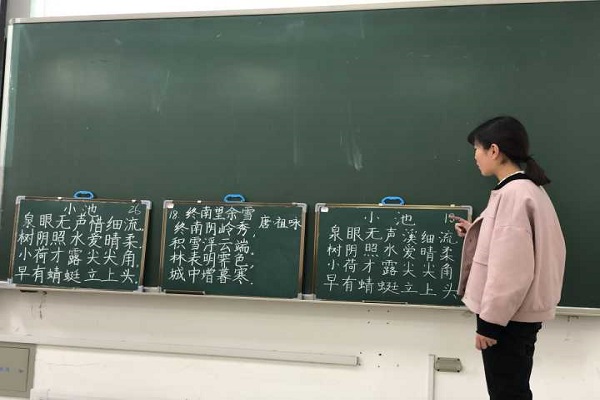 小池 26
泉眼无声惜细流.
树阴照水爱晴柔
小荷才露尖尖角,
早有蜻蜓立上头.
18. 终南望余雪
唐·祖咏
终南阴岭秀,
积雪浮云端.
林表明霁色,
城中增暮寒.
小池
泉眼无声溪细流.
树阴照水爱晴柔
小荷才露尖尖角
早有蜻蜓立上头